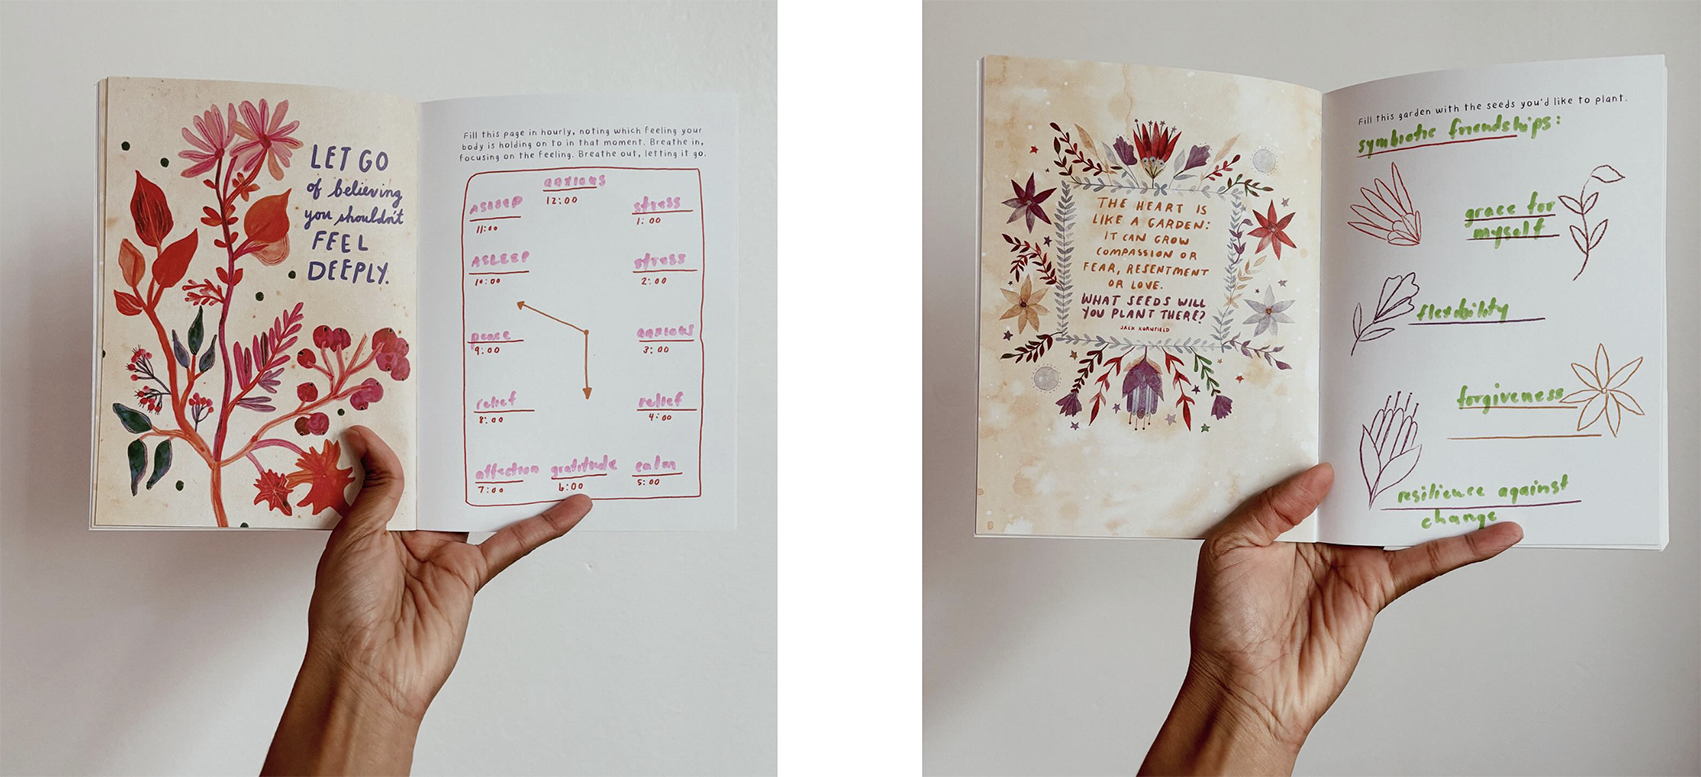 LET GO
of believing
you shouldn't
FEEL
DEEPLY.
Fill this page in hourly, noting which feeling your
body is holding on to in that moment. Breathe in,
focusing on the feeling. Breathe out, letting it go.
anxious
12:00
ASLEEP
11:00
stress
1:00
ASLEEP
10:00
stress
2:00
peace
9:00
anxious
3:00
relief
8:00
relief
4:00
affection
7:00
gratitude
6:00
calm
5:00
THE HEART IS
LIKE A GARDEN:
IT CAN GROW
COMPASSION OR
FEAR, RESENTMENT
OR LOVE.
WHAT SEEDS WILL
YOU PLANT THERE?
JACK KORNFIELD
Fill this garden with the seeds you'd like to plant.
symbiotic friendships:
grace for
myself
flexibility
forgiveness
resilience against
change